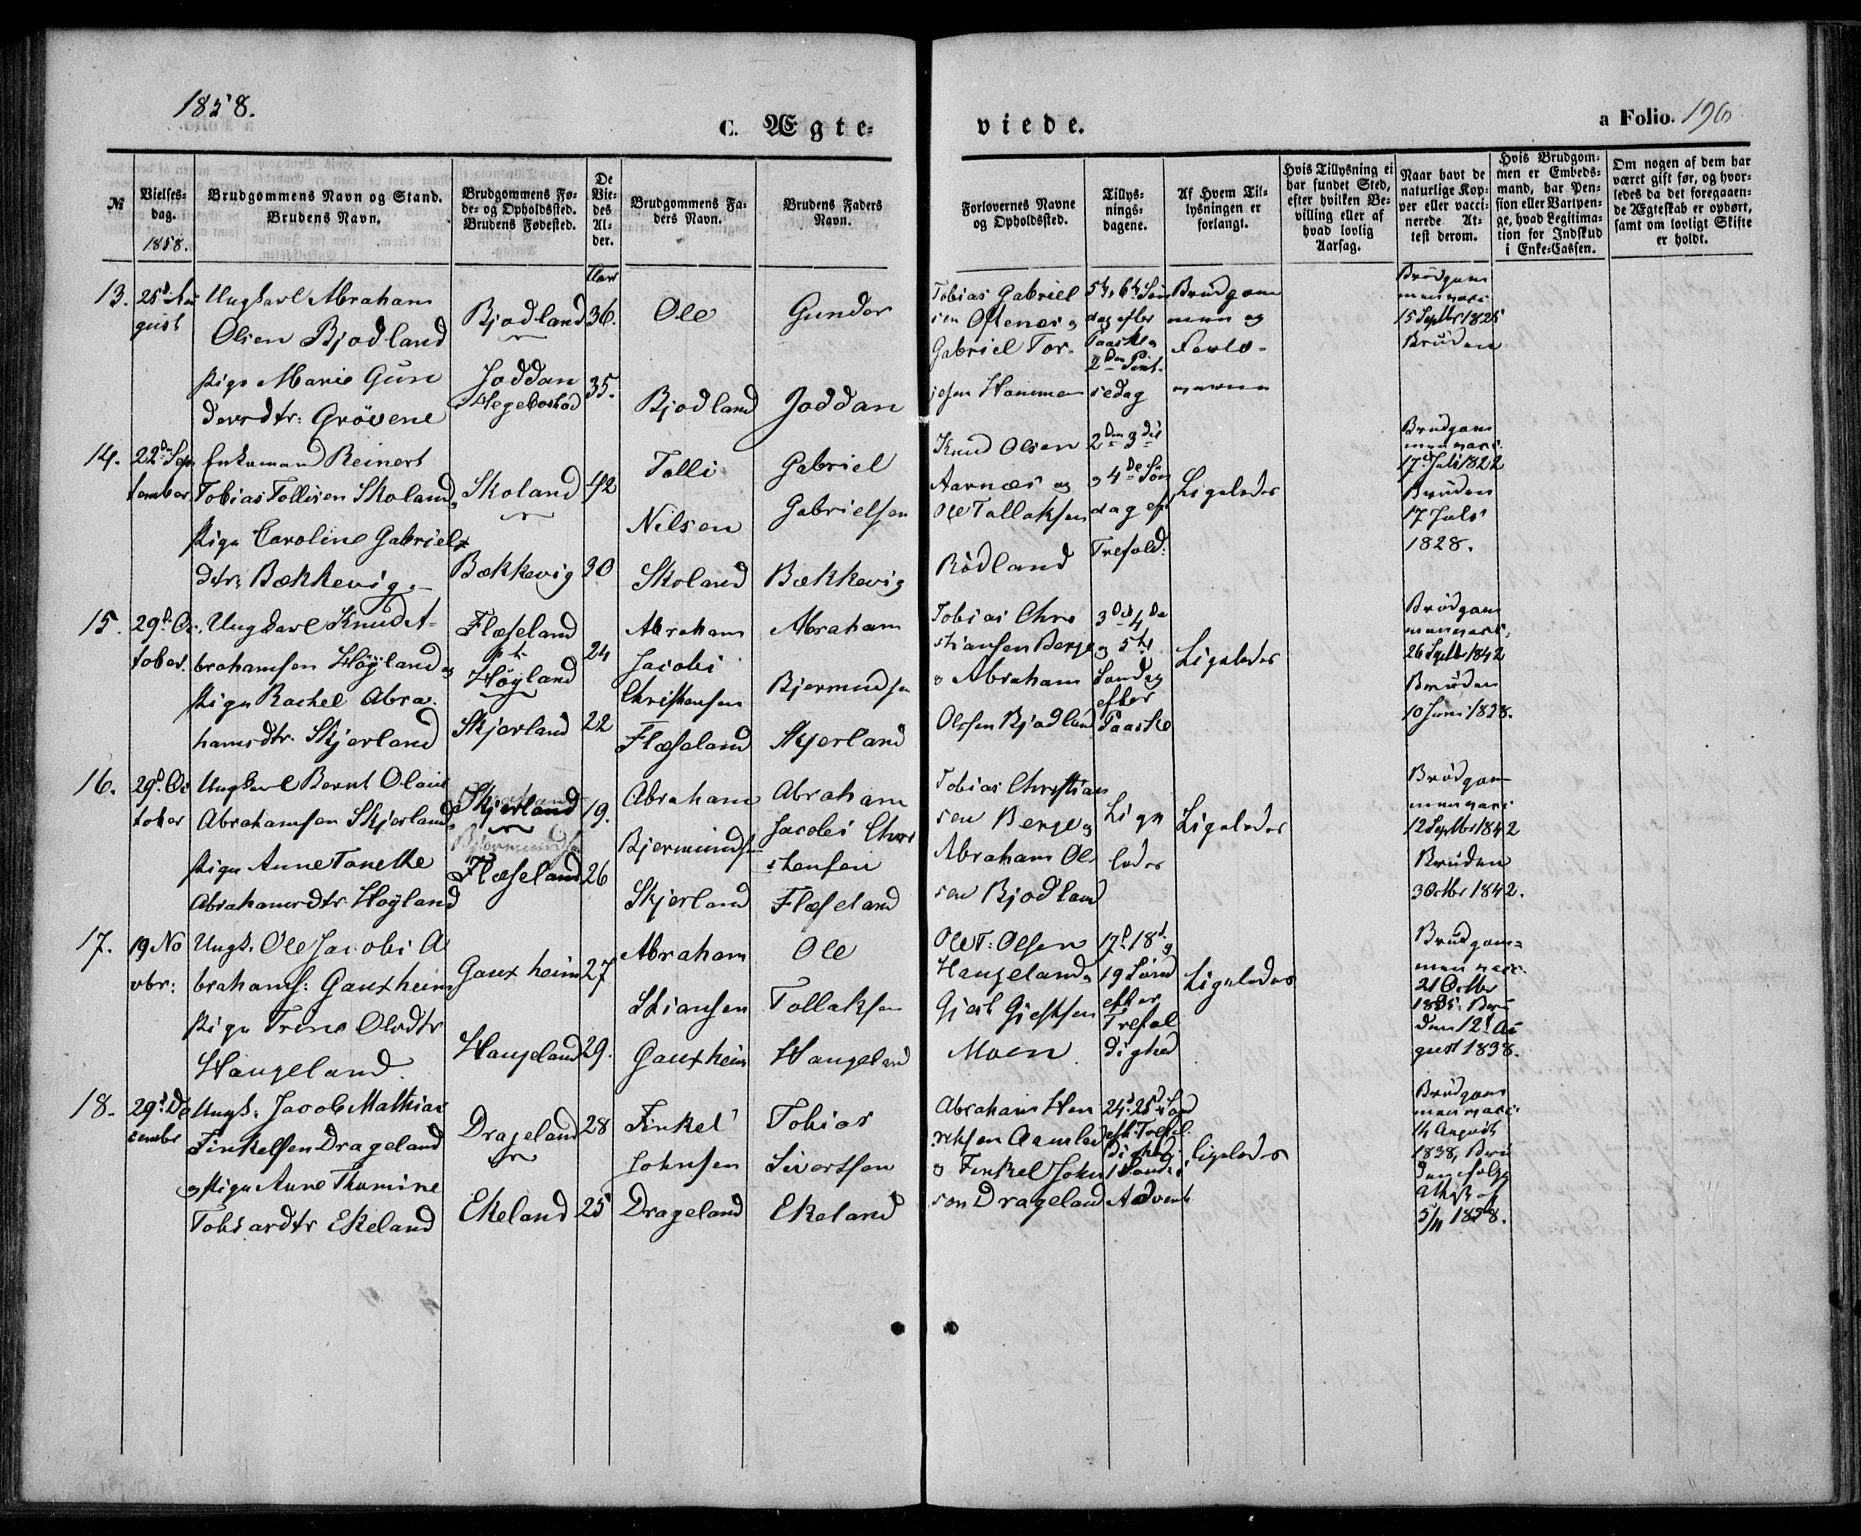 1858.
C. Ægte-
viede.
a Folio. 196
№
Vielses-
dag.
1858.
Brudgommens Navn og Stand.
Brudens Navn.
Brudgommens Fø-
de- og Opholdssted.
Brudens Fødested.
De
Vie-
des
Al-
der.
Brudgommens Fa-
ders Navn.
Brudens Faders
Navn.
Forlovernes Navne
og Opholdssted.
Tillys-
nings-
dagene.
Af Hvem Til-
lysningen er
forlangt.
Hvis Tillysning ei
har fundet Sted,
efter hvilken Be-
villing eller af
hvad lovlig
Aarsag.
Naar havt de
naturlige Kop-
per eller vacci-
nerede. At-
test derom.
Hvis Brudgom-
men er Embeds-
mand, har Pen-
sion eller Vartpen-
ge, hvad Legitima-
tion for Indskud
i Enke-Cassen.
Om nogen af dem har
været gift før, og hvor-
ledes da det foregaaen-
de Ægteskab er ophørt,
samt om lovligt Skifte
er holdt.
13.
25d Au
gust
Ungkarl Abraham
Olsen Bjodland
Pige Marie Gun
dersdtr: Grövene
Bjodland
Joddan
Hegebostad
Aar
36.
35.
Ole
Bjodland
Gunder
Joddan
Tobias Gabriel
sen Oftenæs og
Gabriel Tor-
jesen Hamme
5te, 6te Søn
dag efter
Paaske og
2den Pint-
sedag
Brudgom
men og
Forlo-
verne
Brudgom
men vacc
15 Septbr 1825
Bruden
14.
22de Sep
tember
Enkemand Reinert
Tobias Tollisen Skoland
Pige Caroline Gabriels
dtr: Bækkevig
Skoland
Bækkevig
42
30
Tolli
Nilsen
Skoland
Gabriel
Gabrielsen
Bækkevig
Knud Olsen
Aarnæs og
Ole Tallaksen
Rödland
2den 3die
og 4de Søn
dag ef
Trefold:
Ligeledes
Brudgom
men vacc.
17d Juli 1822
Bruden
17 Juli
1828.
15.
29de Oc
tober.
Ungkarl Knud A-
brahamsen Höyland og
Pige Rachel Abra-
hamsdtr. Skjerland
Flæseland
pt.
Höyland
Skjerland
24
22
Abraham
Jacobi
Christensen
Flæseland
Abraham
Bjermundsen
Skjerland
Tobias Chris
tiansen Berge
o Abraham
Olsen Bjodland
3de 4de
og 5te
Sondag
efter
Paaske
Ligeledes
Brudgom
men vacc.
26 Septbr 1842
Bruden
10 Juni 1838.
16.
29d. Oc
tober
Ungkarl Bernt Olaus
Abrahamsen Skjerland
Pige Anne Tonette
Abrahamsdtr Höyland
Skjerland
Flæseland
19.
26
Abraham
Bjermunds
Skjerland
Abraham
Jacobi Chri
stensen
Flæseland
Tobias Christian
sen Berge og
Abraham Ol
sen Bjodland
Lige
ledes
Ligeledes
Brudgom
men vacc
12 Septbr 1842
Bruden
3 Octbr 1842.
17.
19 No
vbr:
Ungk: Ole Jacobi A
brahams: Gauxheim
Pige Trine Olsdtr
Haugeland.
Gauxheim
Haugeland
27
29.
Abraham
Stiansen
Gauxheim
Ole
Tollaksen
Haugeland
Ole T: Olsen
Haugeland og
Gjert Gjertsen
Moen.
17d 18d og
19 Sønd
efter
Trefol
dighed
Ligeledes
Brudgom-
men vacc.
21 Octbr
1835. Bru
den 12te Au
gust 1838.
18.
29d De
cembr
Ungk: Jacob Mathias
Finkelsen Drageland
og Pige Anne Thomine
Tobiasdtr Ekeland
Drageland
Ekeland
28
25
Finkel
Johnsen
Drageland
Tobias
Sivertsen
Ekeland
Abraham Hen
riksen Aamland
o Finkel John
sen Drageland
24d. 25d Sønd
eft. Trefol.
dighed
1 Sønd i
Advent
Ligeledes
Brudgom
men vacc.
14 August
1838, Bru
den ifølge
Attest af
5/11 1858.